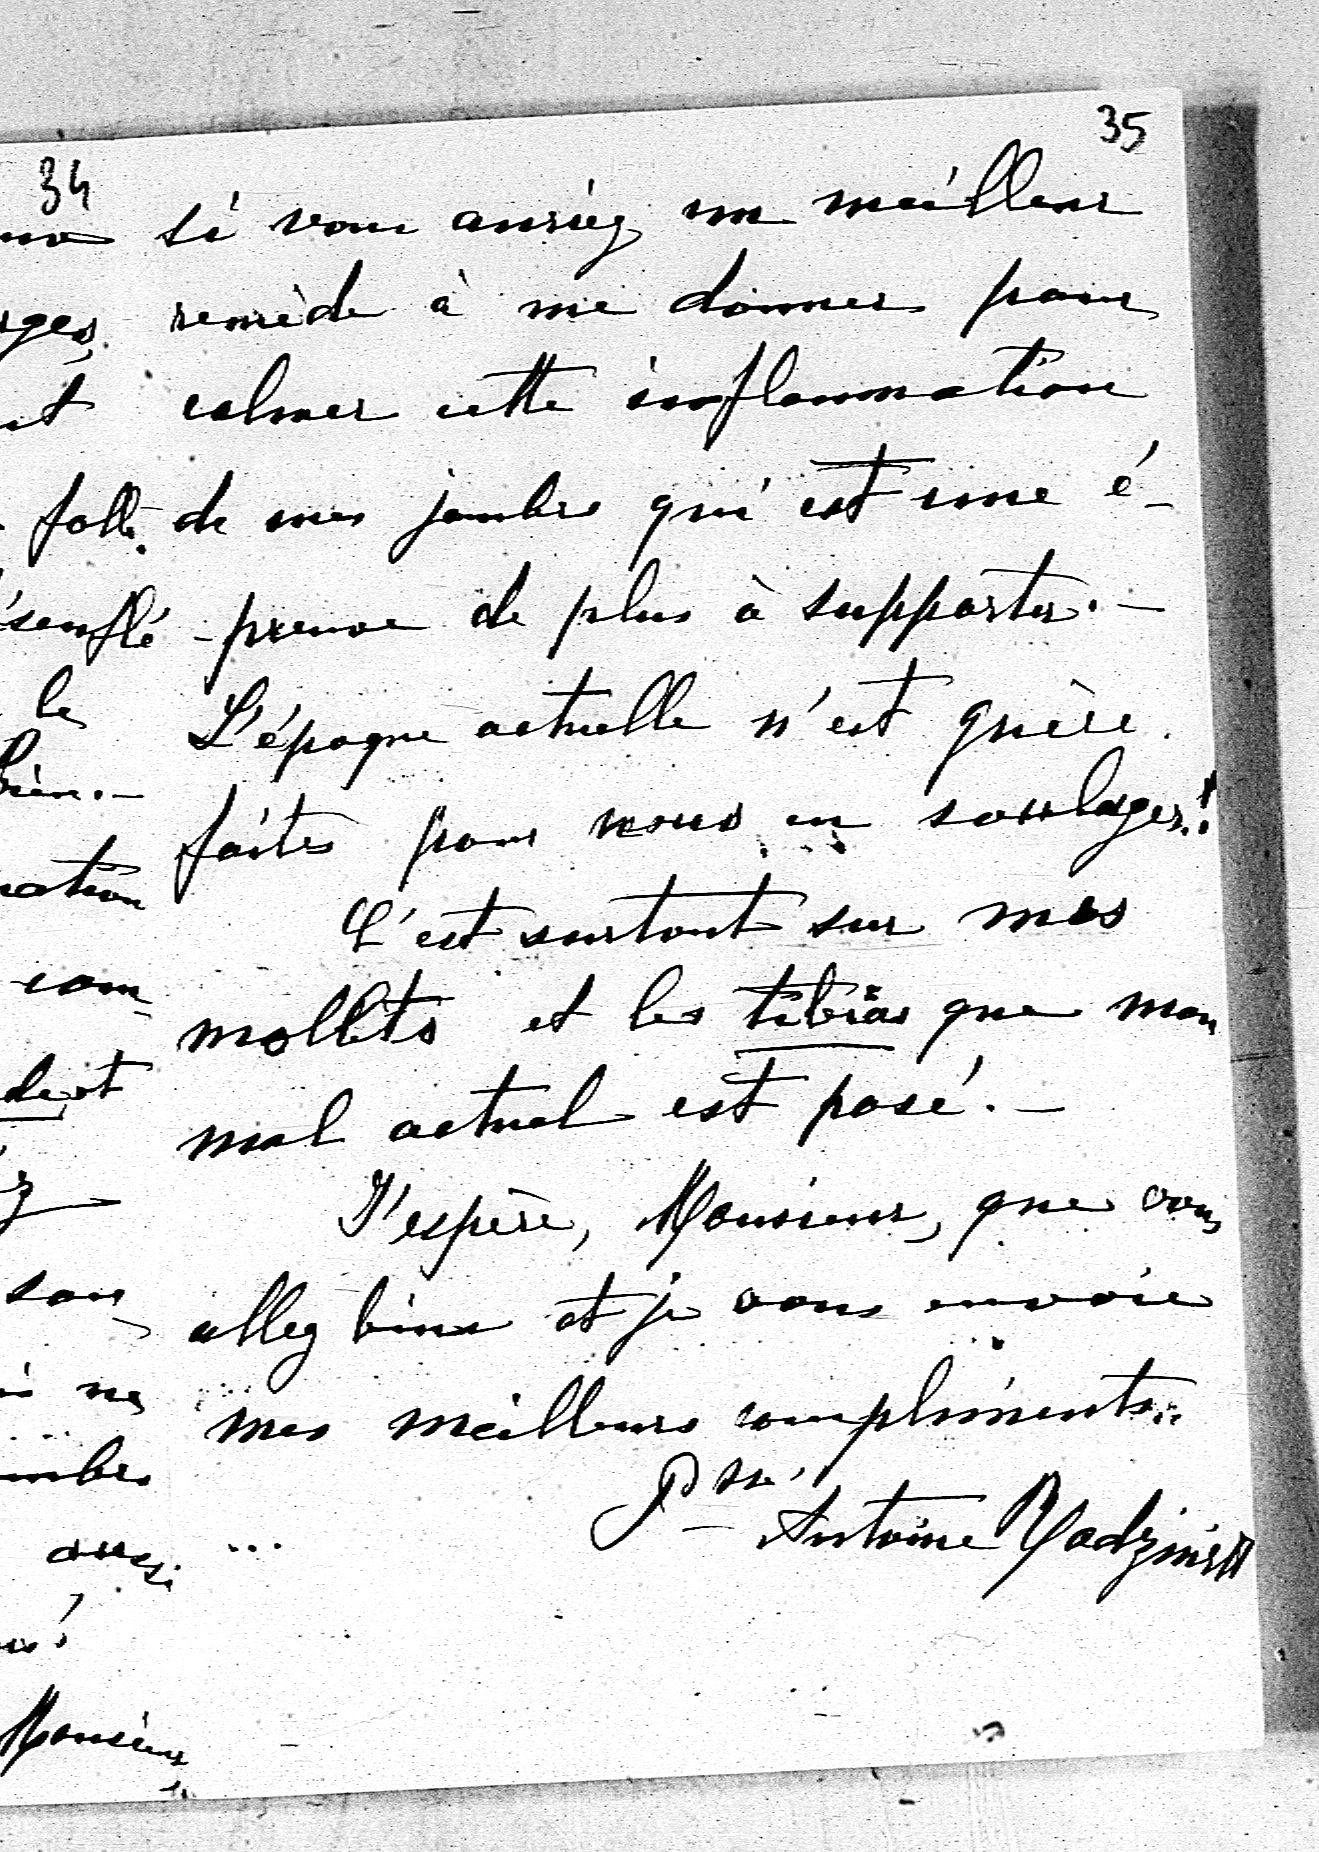 34
35
si vous auriez un meilleur
remède à me donner pour
calmer cette inflammation
de mes jambes qui est une é-
-preuve de plus à supporter.-
L'époque actuelle n'est guère
faite pour nous en soulager!
C'est surtout sur mes
mollets et les tibias que mon
mal actuel est posé.-
J'espère, Monsieur, que vous
allez bien et je vous envoie
mes meilleurs compliments..
Psse
Antoine Radziwill
ation
com-
aussi
Monsieur